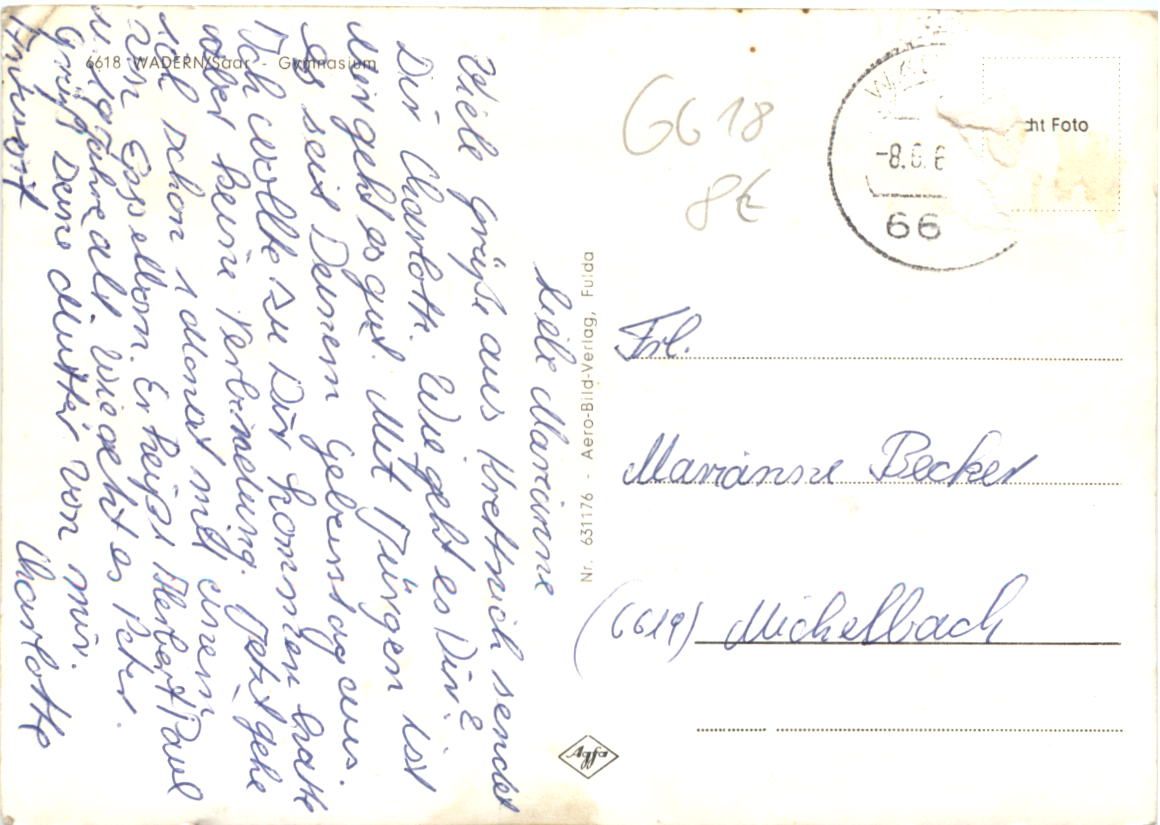 6618 WADERN/Saar - Gymnasium
Liebe Marianne
Viele Grüße aus Krettnich sendet
Dir Charlott. Wie geht es Dir?
Mir geht es gut. Mit Jürgen ist
es seit Deinem Gebenstag aus.
Ich wollte zu Dir kommen hatte
aber keine Verbindung. Jetzt gehe
ich schon 1 Monat mit einem
von Eppelborn. Er heißt Herbert Paul
u. ist Jahre alt. Wie geht es Peter.
Grüß Deine Mutter von mir.
Antwort Charlotte
Nr. 631176 - Aero-Bild-Verlag, Fulda
6618
8€
-8.6.6
66
cht Foto
Frl.
Marianne Becker
(6619) Michelbach
Agfa